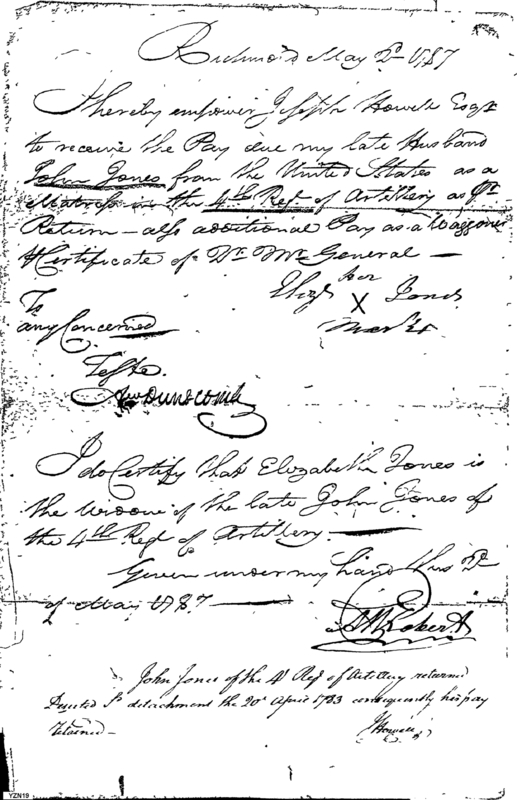 Richmond May 2d 1787
I hereby empower Joseph Howell Esqr
to receive the Pay due my late Husband
John Jones from the United States as a
Matross in the 4th Regt of Artillery as Pr
Return — also additional Pay as a Waggoner
Certificate of Dr Mr General —
her
Eliza X Jones
Mark
To
any Concerned
Teste.
Andw Dunscomb
I do Certify that Elizabeth Jones is
the widow of the late John Jones of
the 4th Regt of Artillery. —
Given under my hand this 2d
of May 1787 —
John Jones of the 4 Regt of Artillery returned
Deserted Sr detachment the 20 April 1783 consequently his pay
retained —
J Howell
YZN19